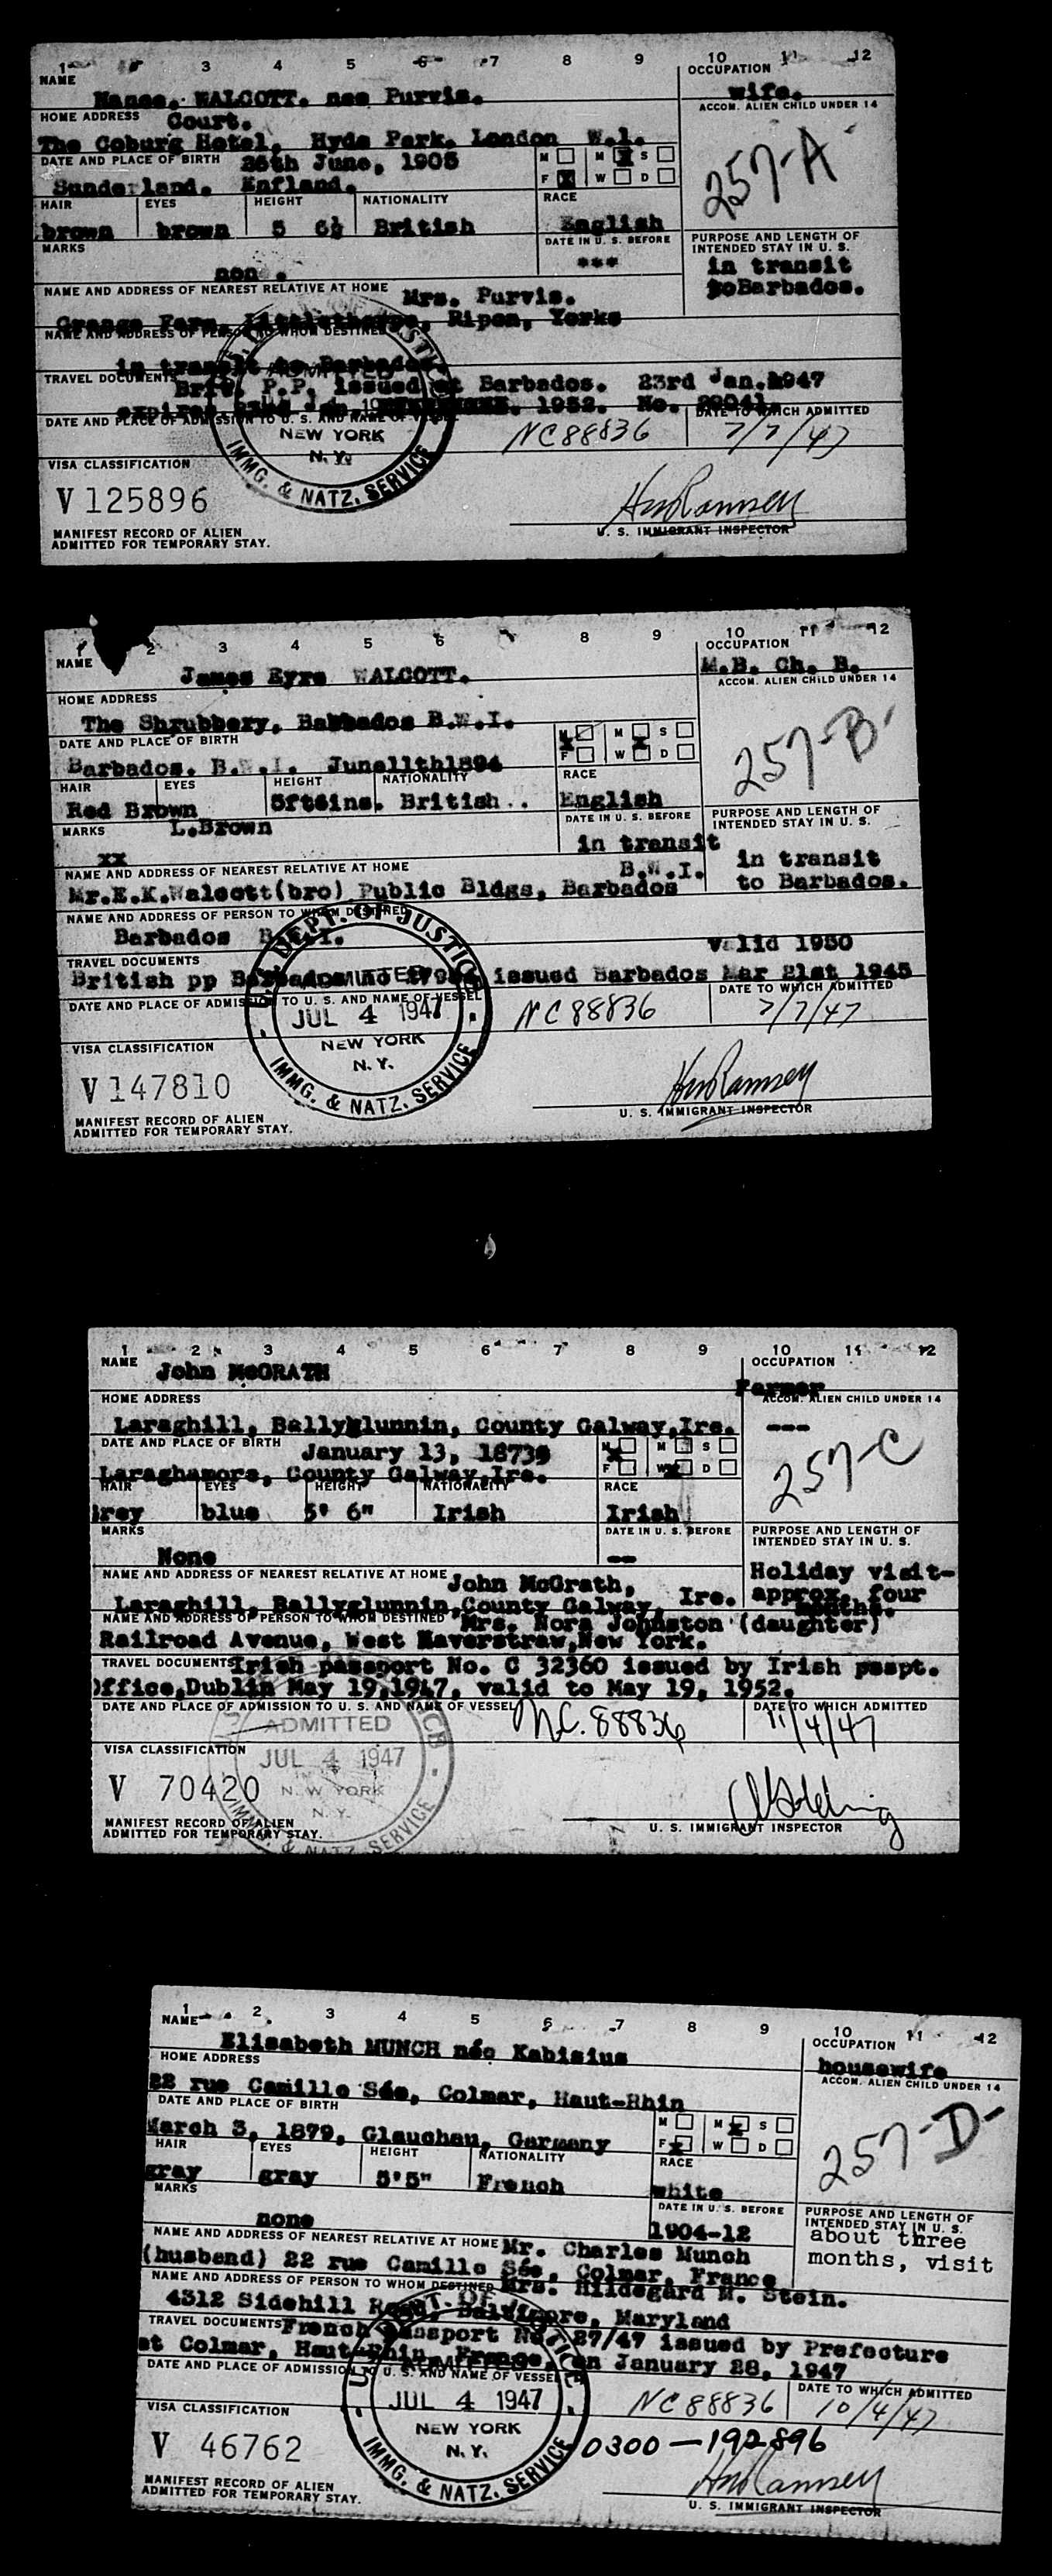 1 3 4 5 6 7 8 9 10 11 12
NAME OCCUPATION
WALCOTT. nee Purvis. wife.
HOME ADDRESS Court. ACCOM. ALIEN CHILD UNDER 14
The Coburg Hotel, Hyde Park. London W.1.
DATE AND PLACE OF BIRTH 26th June, 1905 M M S
Sunderland. Enfland. F X W D
257-A
HAIR EYES HEIGHT NATIONALITY RACE
brown brown 5 6½ British English
MARKS DATE IN U. S. BEFORE PURPOSE AND LENGTH OF
INTENDED STAY IN U. S.
non . *** in transit
NAME AND ADDRESS OF NEAREST RELATIVE AT HOME Mrs. Purvis. toBarbados.
Grange Farm, Littlethorpe, Ripon, Yorks
NAME AND ADDRESS OF PERSON TO WHOM DESTINED
in transit to Barbados.
TRAVEL DOCUMENTS Brit. P.P. issued at Barbados. 23rd Jan.1947
expires Jan. 1952. No.
DATE AND PLACE OF ADMISSION TO U. S. AND NAME OF VESSEL DATE TO WHICH ADMITTED
NEW YORK NC 88836 7/7/47
N. Y.
IMMG. & NATZ. SERVICE
VISA CLASSIFICATION
V 125896 HmRamsey
U. S. IMMIGRANT INSPECTOR
MANIFEST RECORD OF ALIEN
ADMITTED FOR TEMPORARY STAY.
1 2 3 4 5 6 8 9 10 11 12
NAME OCCUPATION
James Eyre WALCOTT. M.B. Ch. B.
HOME ADDRESS ACCOM. ALIEN CHILD UNDER 14
The Shrubbery, Barbados B.W.I.
DATE AND PLACE OF BIRTH M M S
Barbados. B.W.I. June11th1894 F W D
257-B
HAIR EYES HEIGHT NATIONALITY RACE
Red Brown 5ft6ins. British.. English
MARKS L.Brown DATE IN U. S. BEFORE PURPOSE AND LENGTH OF
INTENDED STAY IN U. S.
xx in transit in transit
NAME AND ADDRESS OF NEAREST RELATIVE AT HOME B.W.I. to Barbados.
Mr.E.K.Walcott(bro) Public Bldgs, Barbados
NAME AND ADDRESS OF PERSON TO WHOM DESTINED
Barbados B.W.I. Valid 1950
TRAVEL DOCUMENTS
British pp Barbados no issued Barbados Mar 21st 1945
DATE AND PLACE OF ADMISSION TO U. S. AND NAME OF VESSEL DATE TO WHICH ADMITTED
DEPT. OF JUSTICE
ADMITTED
JUL 4 1947 NC 88836 7/7/47
NEW YORK
N. Y.
IMMG. & NATZ. SERVICE
VISA CLASSIFICATION
V 147810 HmRamsey
U. S. IMMIGRANT INSPECTOR
MANIFEST RECORD OF ALIEN
ADMITTED FOR TEMPORARY STAY.
1 2 3 4 5 6 7 8 9 10 11 12
NAME John McGRATH OCCUPATION
Farmer
HOME ADDRESS ACCOM. ALIEN CHILD UNDER 14
Laraghill, Ballyglunnin, County Galway,Ire. ---
DATE AND PLACE OF BIRTH January 13, 1873 M M S
Laraghamore, County Galway,Ire. F W D
257-C
HAIR EYES HEIGHT NATIONALITY RACE
Grey blue 5' 6" Irish Irish
MARKS DATE IN U. S. BEFORE PURPOSE AND LENGTH OF
INTENDED STAY IN U. S.
None -- Holiday visit-
NAME AND ADDRESS OF NEAREST RELATIVE AT HOME John McGrath, approx. four
Laraghill, Ballyglunnin,County Galway, Ire. months.
NAME AND ADDRESS OF PERSON TO WHOM DESTINED Mrs. Nora Johnston (daughter)
Railroad Avenue, West Haverstraw,New York.
TRAVEL DOCUMENTS Irish passport No. C 32360 issued by Irish paspt.
Office,Dublin May 19,1947, valid to May 19, 1952.
DATE AND PLACE OF ADMISSION TO U. S. AND NAME OF VESSEL DATE TO WHICH ADMITTED
ADMITTED N.C. 88836 11/4/47
JUL 4 1947
NEW YORK
N. Y.
IMMG. & NATZ. SERVICE
VISA CLASSIFICATION
V 70420
U. S. IMMIGRANT INSPECTOR
MANIFEST RECORD OF ALIEN
ADMITTED FOR TEMPORARY STAY.
1 2 3 4 5 6 7 8 9 10 11 12
NAME OCCUPATION
Elisabeth MUNCH née Kabisius housewife
HOME ADDRESS ACCOM. ALIEN CHILD UNDER 14
22 rue Camille Sée, Colmar, Haut-Rhin
DATE AND PLACE OF BIRTH M M S
March 3, 1879, Glauchau, Germany F W D
257-D-
HAIR EYES HEIGHT NATIONALITY RACE
gray gray 5'5" French white
MARKS DATE IN U. S. BEFORE PURPOSE AND LENGTH OF
INTENDED STAY IN U. S.
none 1904-12 about three
months, visit
NAME AND ADDRESS OF NEAREST RELATIVE AT HOME Mr. Charles Munch
(husbend) 22 rue Camille Sée, Colmar, France
NAME AND ADDRESS OF PERSON TO WHOM DESTINED Mrs. Hildegard M. Stein.
4312 Sidehill Road, Baltimore, Maryland
TRAVEL DOCUMENTS French passport No. 27/47 issued by Prefecture
at Colmar, Haut-Rhin, France, on January 28, 1947
DATE AND PLACE OF ADMISSION TO U. S. AND NAME OF VESSEL DATE TO WHICH ADMITTED
JUL 4 1947 NC 88836 10/4/47
NEW YORK
N. Y.
IMMG. & NATZ. SERVICE
0300-192896
VISA CLASSIFICATION
V 46762 HmRamsey
U. S. IMMIGRANT INSPECTOR
MANIFEST RECORD OF ALIEN
ADMITTED FOR TEMPORARY STAY.